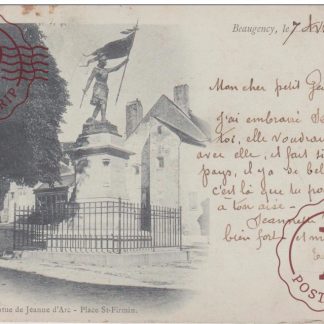 Beaugency, le 7
Mon cher petit
J'ai embrassé
toi, elle voudrai
avec elle, il fait si
pays, il y a de bel
c'est là que tu po
à ton aise -
Jeannette
bien fort et m
tue de Jeanne d'Arc - Place St-Firmin.
TRIP
POST